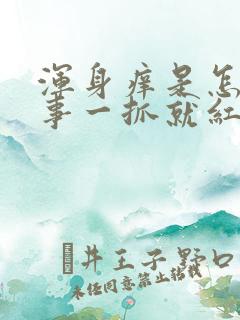 渾身痒是怎
事一抓就紅
井王子野口
未任同意禁止转载